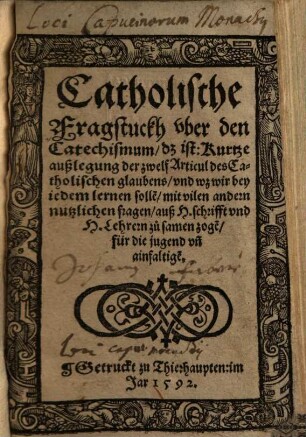 Loci Capucinorum Monachy
Catholische
Fragstuckh vber den
Catechismum/ dz ist: Kurtze
außlegung der zwelf Articul des Ca-
tholischen glaubens/ vnd wz wir bey
iedem lernen sollē/ mit vilen andern
nutzlichen fragen/ auß H. schrifft vnd
H. Lehrern zů samen zogē/
für die jugend vñ
ainfaltigē.
Loci
Getruckt zu Thierhaupten: im
Jar 1592.